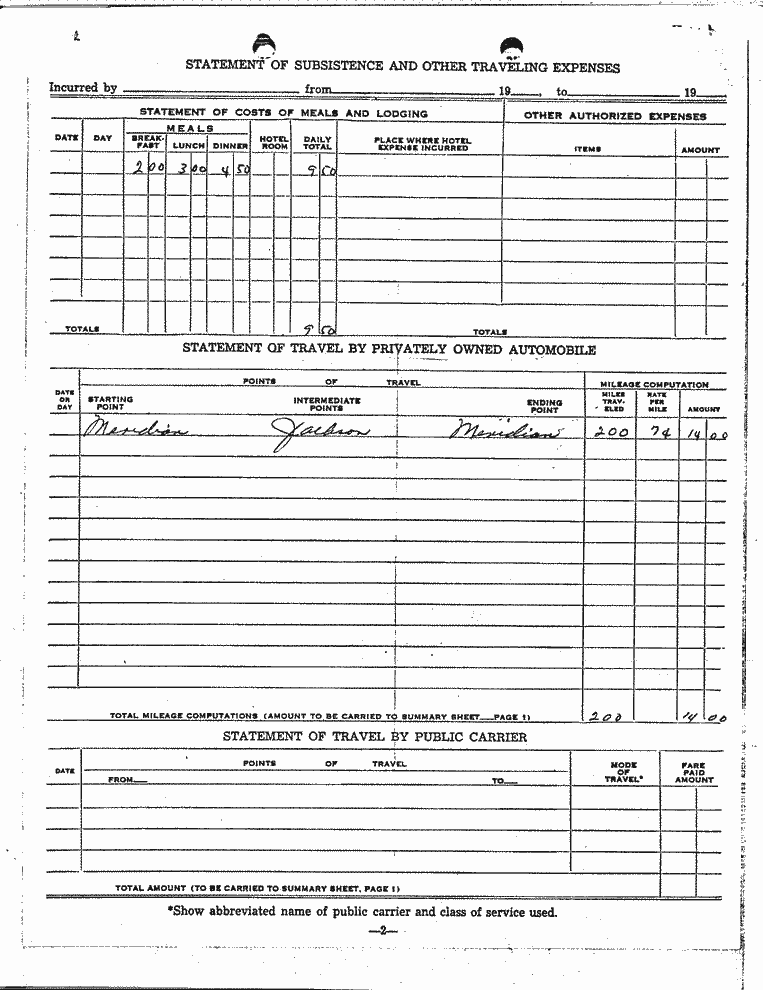 STATEMENT OF SUBSISTENCE AND OTHER TRAVELING EXPENSES
Incurred by from 19 , to 19
STATEMENT OF COSTS OF MEALS AND LODGING OTHER AUTHORIZED EXPENSES
DATE DAY MEALS BREAK-FAST LUNCH DINNER HOTEL ROOM DAILY TOTAL PLACE WHERE HOTEL EXPENSE INCURRED ITEMS AMOUNT
2 00 3 00 4 50 9 50
TOTALS 9 50 TOTALS
STATEMENT OF TRAVEL BY PRIVATELY OWNED AUTOMOBILE
POINTS OF TRAVEL MILEAGE COMPUTATION
DATE OR DAY STARTING POINT INTERMEDIATE POINTS ENDING POINT MILES TRAV-ELED RATE PER MILE AMOUNT
Meridian Jackson Meridian 200 7¢ 14 00
TOTAL MILEAGE COMPUTATIONS (AMOUNT TO BE CARRIED TO SUMMARY SHEET—PAGE 1) 200 14 00
STATEMENT OF TRAVEL BY PUBLIC CARRIER
DATE POINTS OF TRAVEL MODE OF TRAVEL* FARE PAID AMOUNT
FROM— TO—
TOTAL AMOUNT (TO BE CARRIED TO SUMMARY SHEET, PAGE 1)
*Show abbreviated name of public carrier and class of service used.
—2—